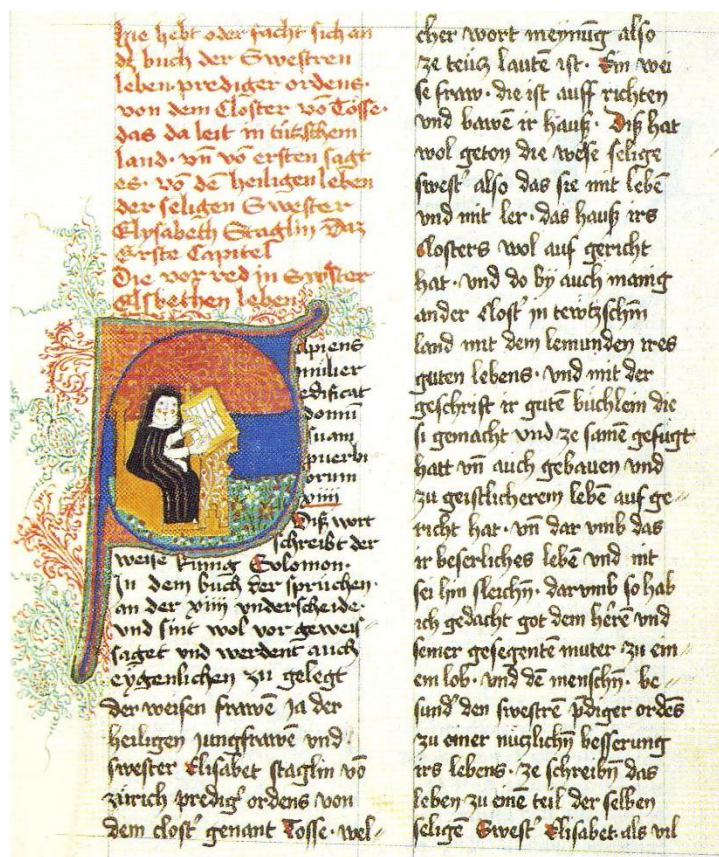 Hie hebt oder facht sich an
dz buch der Swestren
leben prediger ordens.
von dem Closter vō Tosse.
das da leit in tützschem
land. vn̄ vō ersten sagt
es. vō dē heiligen leben
der seligen Swester
Elysabeth Staglin Daz
Erste Capitel
Die vor red in Swester
Elsbethen leben
Sapiens
mulier
edificat
domū
suam
puerbi
orum
xiiii
Diß wort
schreibt der
weise kunig Solomon.
In dem buch der sprüchen.
an der xiiii vnderscheide.
vnd sint wol vor geweis//
saget vnd werdent auch
eygenlichen zu gelegt
der weisen frawē Ja der
heiligen Jungfrawē vnd
swester Elisabet staglin vō
zürich predig' ordens von
dem clost' genant Tosse. wel//
cher wort meynūg also
ze teusch lautē ist. Ein wei
se fraw. die ist auff richten
vnd bawē ir hauß. Diß hat
wol geton die weise selige
swest' also das sie mit lebē
vnd mit ler. das hauß irs
Closters wol auf gericht
hat. vnd do by auch manig
ander Clost' in tewtzschm̄
land mit dem lemunden ires
guten lebens. vnd mit der
geschrift ir gutē büchlein die
si gemacht vnd ze samē gefügt
hatt vn̄ auch gebauen vnd
zu geistlicherem lebē auf ge//
richt hat. vn̄ dar vmb das
ir beserliches lebē vnd nit
sei hin sleichn̄. darvmb so hab
ich gedacht got dem hērē vnd
seiner gesegentē muter. zu ein//
em lob. vnd dē menschn̄. be//
sund' den swestrē p̄diger ordēs
zu einer nützlichn̄ besserung
irs lebens. ze schreibn̄ das
leben zu einē teil der selben
seligē Swest' Elisabet als vil